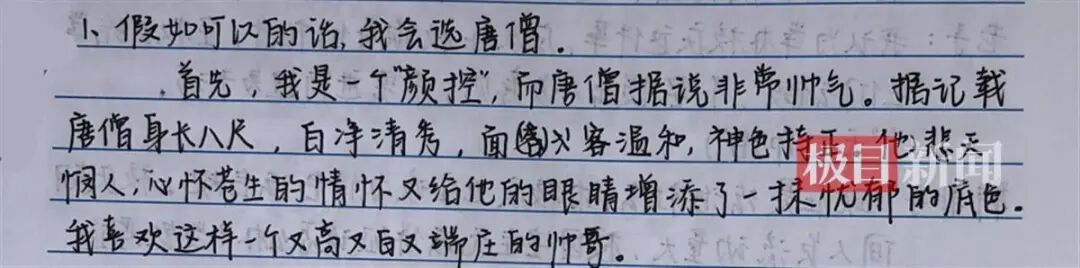 1、假如可以的话,我会选唐僧。
首先,我是一个"颜控",而唐僧据说非常帅气。据记载
唐僧身长八尺,白净清秀,面容温和,神色持 他悲天
悯人,心怀苍生的情怀又给他的眼睛增添了一抹忧郁的底色。
我喜欢这样一个又高又白又端庄的帅哥。
极目新闻